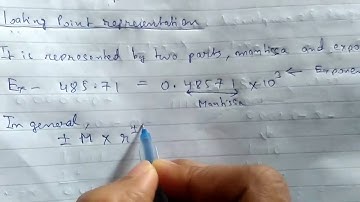 Loating Point representation
It is represented by two parts, mantissa and expo
Ex – 485.71 = 0.48571 × 10³ ← Expone
Mantissa
In general,
± M × r±